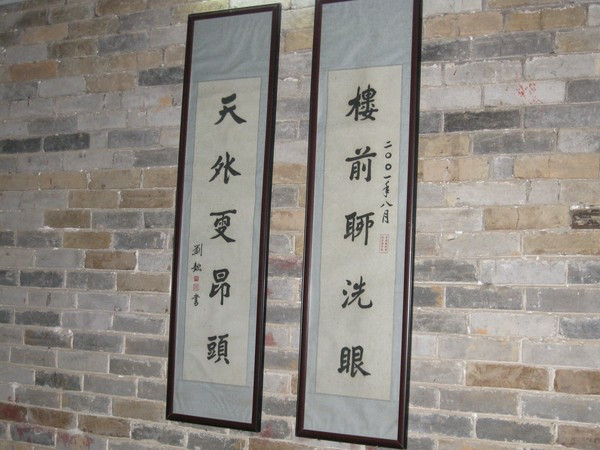 樓前聊洗眼
二〇〇一年八月
天外更昂頭
劉
書